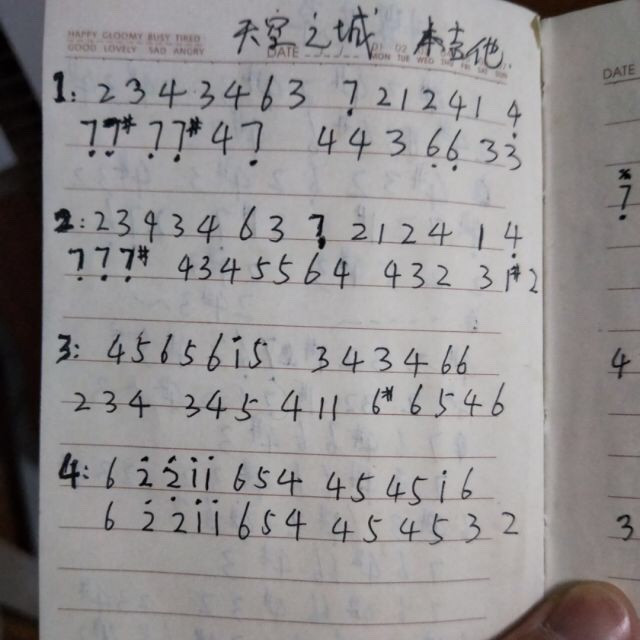 HAPPY GLOOMY BUSY TIRED
GOOD LOVELY SAD ANGRY
天空之城 木吉他
DATE 01 02
MON TUE WED THU FRI SAT SUN
DATE
1: 2 3 4 3 4 6 3 7̣ 2 1 2 4 1 4̣
7̣ 7̣# 7̣ 7̣# 4 7̣ 4 4 3 6̣ 6̣ 3 3
2: 2 3 4 3 4 6 3 7̣ 2 1 2 4 1 4̣
7̣ 7̣ 7̣# 4 3 4 5 5 6 4 4 3 2 3 1# 2
3: 4 5 6 5 6 i 5 3 4 3 4 6 6
2 3 4 3 4 5 4 1 1 6# 6 5 4 6
4: 6 2̇ 2̇ i i 6 5 4 4 5 4 5 i 6
6 2̇ 2̇ i i 6 5 4 4 5 4 5 3 2
7̣
4
3